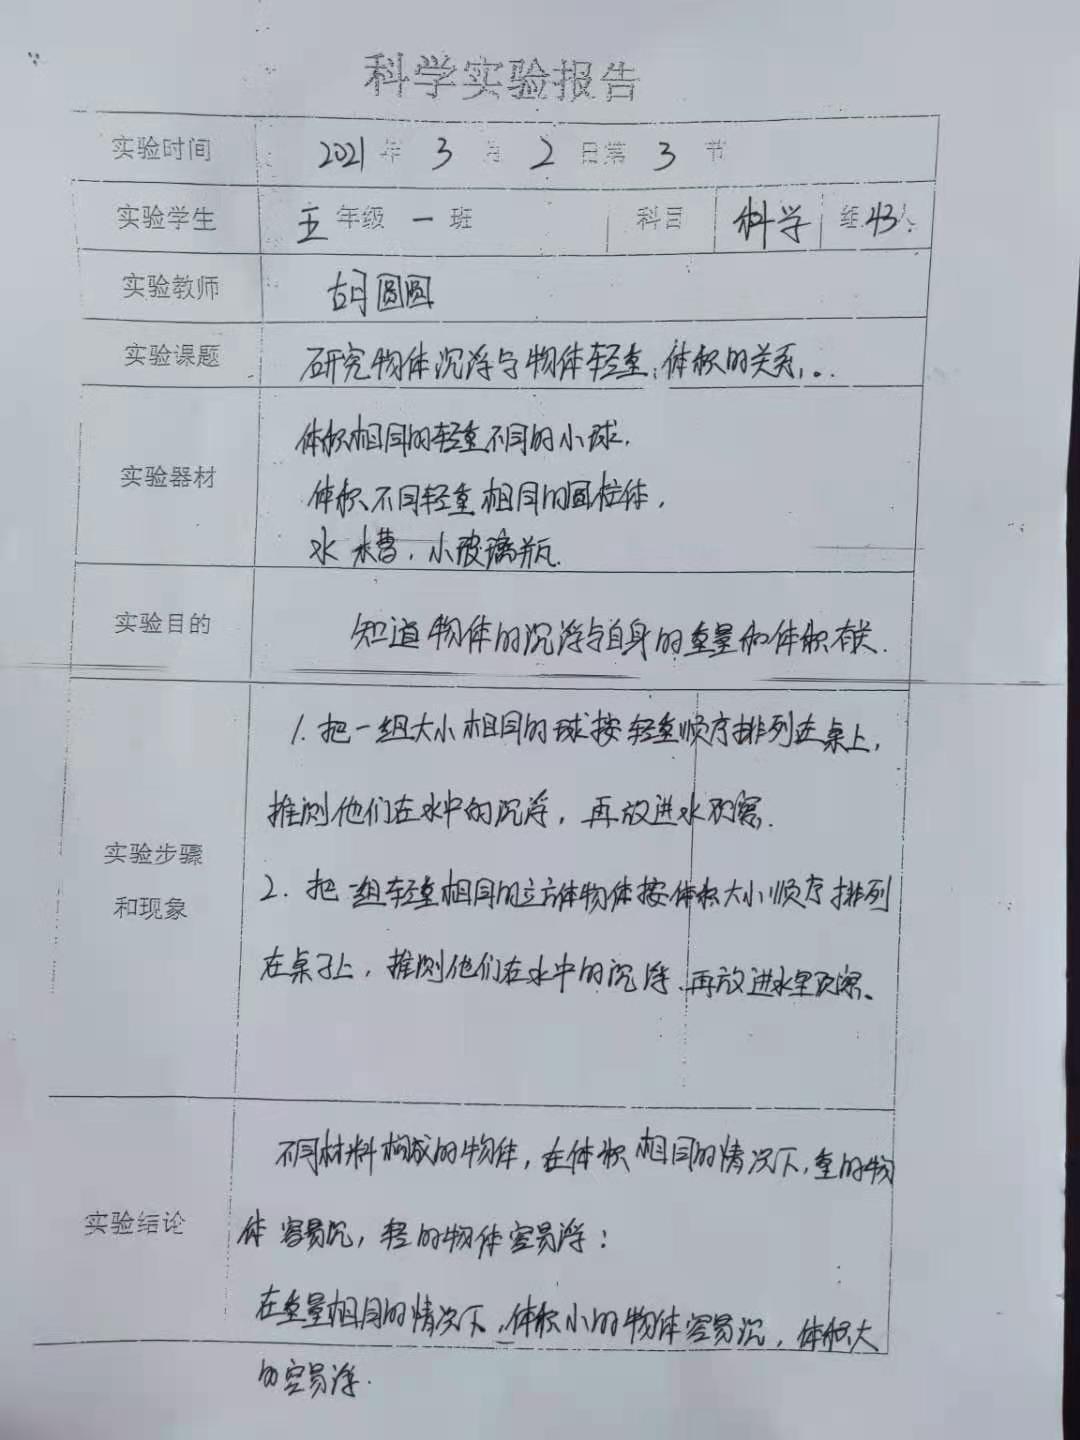 科学实验报告
实验时间 2021年 3 月 2 日第 3 节
实验学生 五 年级 一 班 科目 科学 组 43人
实验教师 胡圆圆
实验课题 研究物体沉浮与物体轻重、体积的关系。
实验器材
体积相同的轻重不同的小球.
体积不同轻重相同的圆柱体,
水 水槽, 小玻璃瓶.
实验目的 知道物体的沉浮与自身的重量和体积有关.
实验步骤
和现象
1. 把一组大小相同的球按轻重顺序排列在桌上,
推测他们在水中的沉浮, 再放进水观察.
2. 把一组轻重相同的立方体物体按体积大小顺序排列
在桌子上, 推测他们在水中的沉浮、再放进水里观察。
实验结论
不同材料构成的物体, 在体积相同的情况下, 重的物
体容易沉, 轻的物体容易浮;
在重量相同的情况下, 体积小的物体容易沉, 体积大
的容易浮.